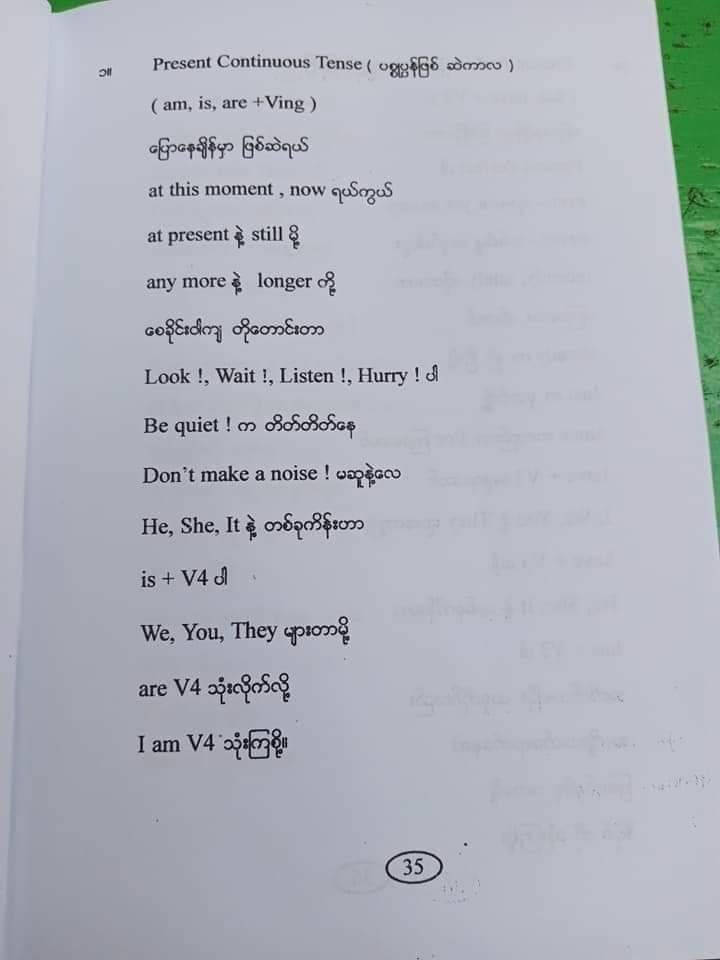 ၁။ Present Continuous Tense ( ပစ္စုပ္ပန်ဖြစ် ဆဲကာလ )
( am, is, are +Ving )
ပြောနေချိန်မှာ ဖြစ်ဆဲရယ်
at this moment , now ရယ်ကွယ်
at present နဲ့ still မို့
any more နဲ့ longer တို့
စေခိုင်းဝါကျ တိုတောင်းတာ
Look !, Wait !, Listen !, Hurry ! ပါ
Be quiet ! က တိတ်တိတ်နေ
Don't make a noise ! မဆူနဲ့လေ
He, She, It နဲ့ တစ်ခုကိန်းဟာ
is + V4 ပါ
We, You, They များတာမို့
are V4 သုံးလိုက်လို့
I am V4 သုံးကြစို့။
35